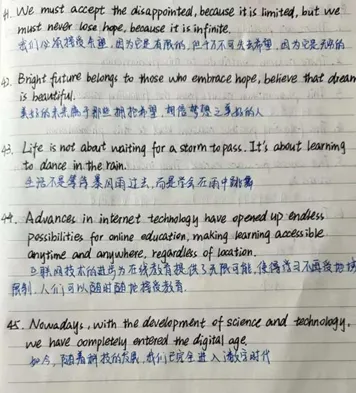 41. We must accept the disappointed, because it is limited, but we
must never lose hope, because it is infinite.
我们必须接受失望,因为它是有限的,但千万不可失去希望,因为它是无穷的
42. Bright future belongs to those who embrace hope, believe that dream
is beautiful.
美好的未来属于那些拥抱希望,相信梦想之美好的人
43. Life is not about waiting for a storm to pass. It's about learning
to dance in the rain.
生活不是等待暴风雨过去,而是学会在雨中跳舞
44. Advances in internet technology have opened up endless
possibilities for online education, making learning accessible
anytime and anywhere, regardless of location.
互联网技术的进步为在线教育提供了无限可能,使得学习不再受地域
限制,人们可以随时随地接受教育.
45. Nowadays, with the development of science and technology,
we have completely entered the digital age.
如今,随着科技的发展,我们已完全进入数字时代